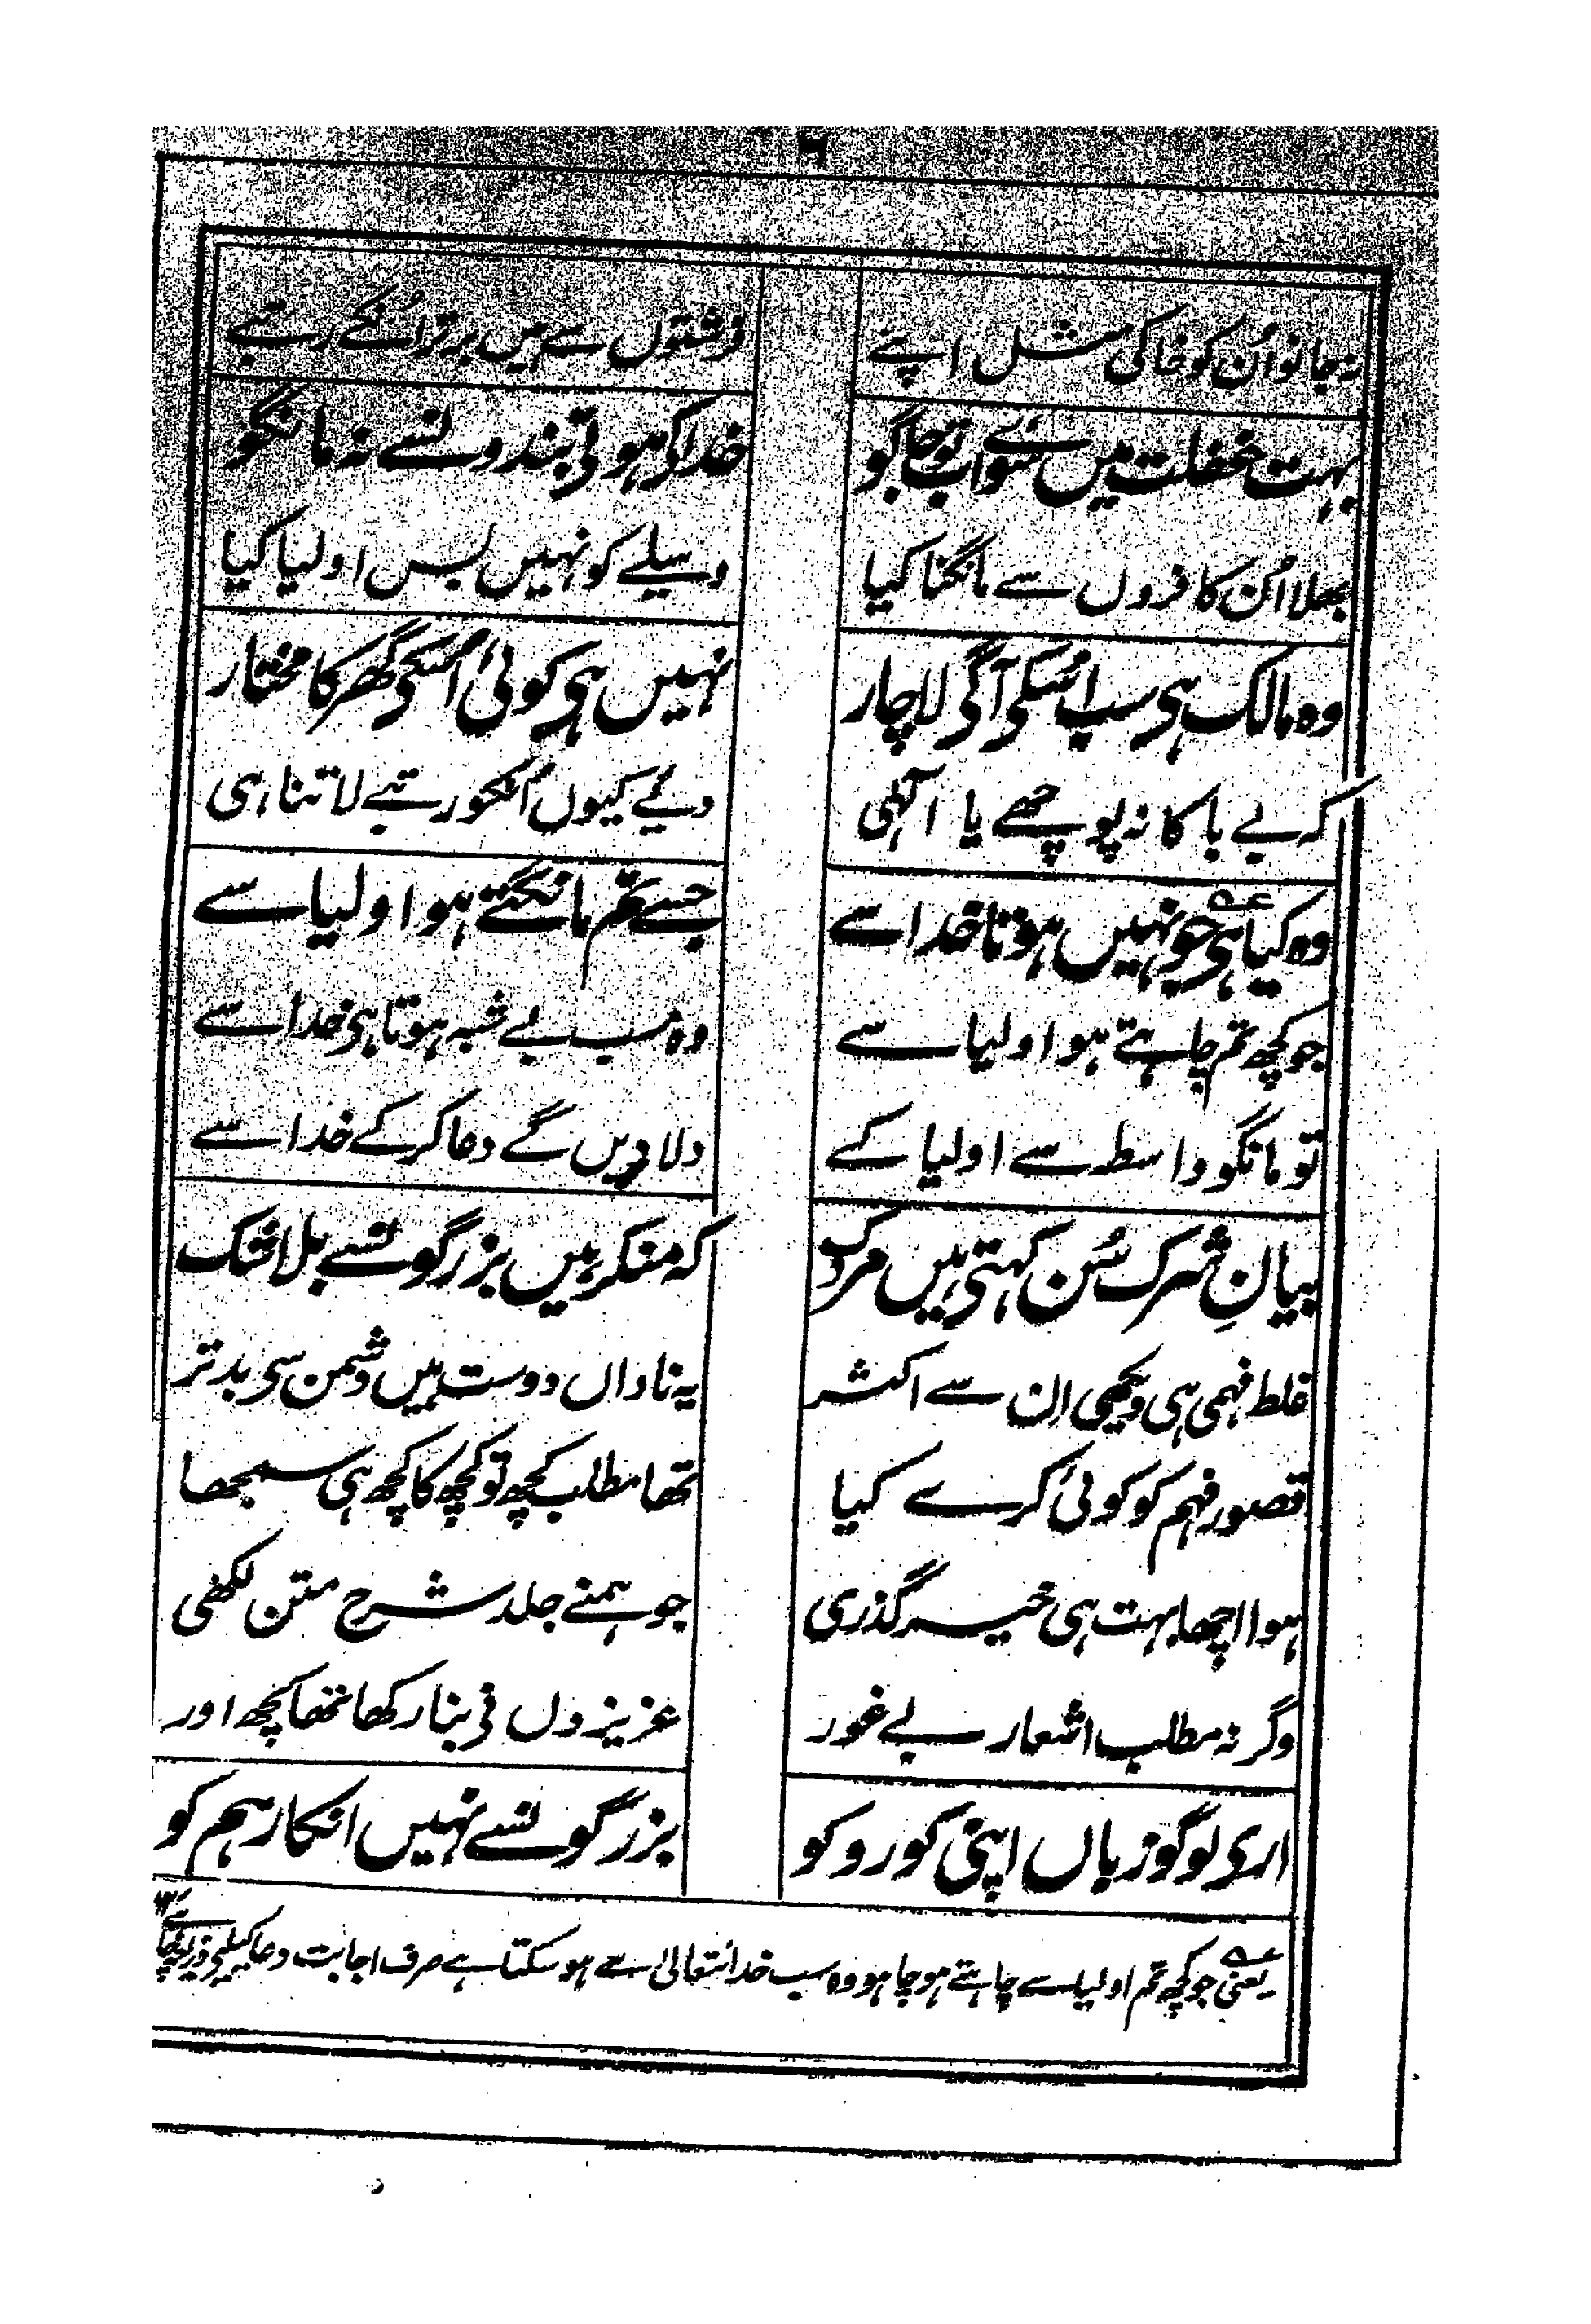 ۶
نہ جانو اُن کو خاکی مثل اپنے فرشتوں سے ہیں برتر اُنکے رتبے
بہت غفلت میں سوئے اب تو جاگو خدا کی ہوتی بندونسے نہ مانگو
بھلا اُن کافروں سے مانگنا کیا وسیلے کو نہیں بس اولیا کیا
وہ مالک ہی سب اُسکی آگی لاچار نہیں ہی کوئی اُسکی گھر کا مختار
کہ بے باکانہ پوچھے یا آلٰہی دئیے کیوں اُنکو رتبے لاتناہی
وہ کیا ہی جو نہیں ہوتا خدا سے جسے تم مانگتے ہو اولیا سے
جو کچھ تم چاہتے ہو اولیا سے وہ سب بے شبہ ہوتا ہی خدا سے
تو مانگو واسطہ سے اولیا کے دلا دیں گے دعا کرکے خدا سے
بیانِ شرک سُن کہتی ہیں مردک کہ منکر ہیں بزرگونسے بلاشک
غلط فہمی ہی دیکھی اِن سے اکثر یہ ناداں دوست ہیں دشمن سی بدتر
قصور فہم کو کوئی کرے کیا تھا مطلب کچھ تو کچھ کا کچھ ہی سمجھا
ہوا اچھا بہت ہی خیر گذری جو ہمنے جلد شرح متن لکھی
وگرنہ مطلب اشعار بے غور عزیزوں نی بنا رکھا تھا کچھ اور
اری لوگو زباں اپنی کو روکو بزرگونسے نہیں انکار ہم کو
عہ یعنی جو کچھ تم اولیا سے چاہتے ہو چاہو وہ سب خدا تعالیٰ سے ہو سکتا ہے صرف اجابت دعا کیلیے